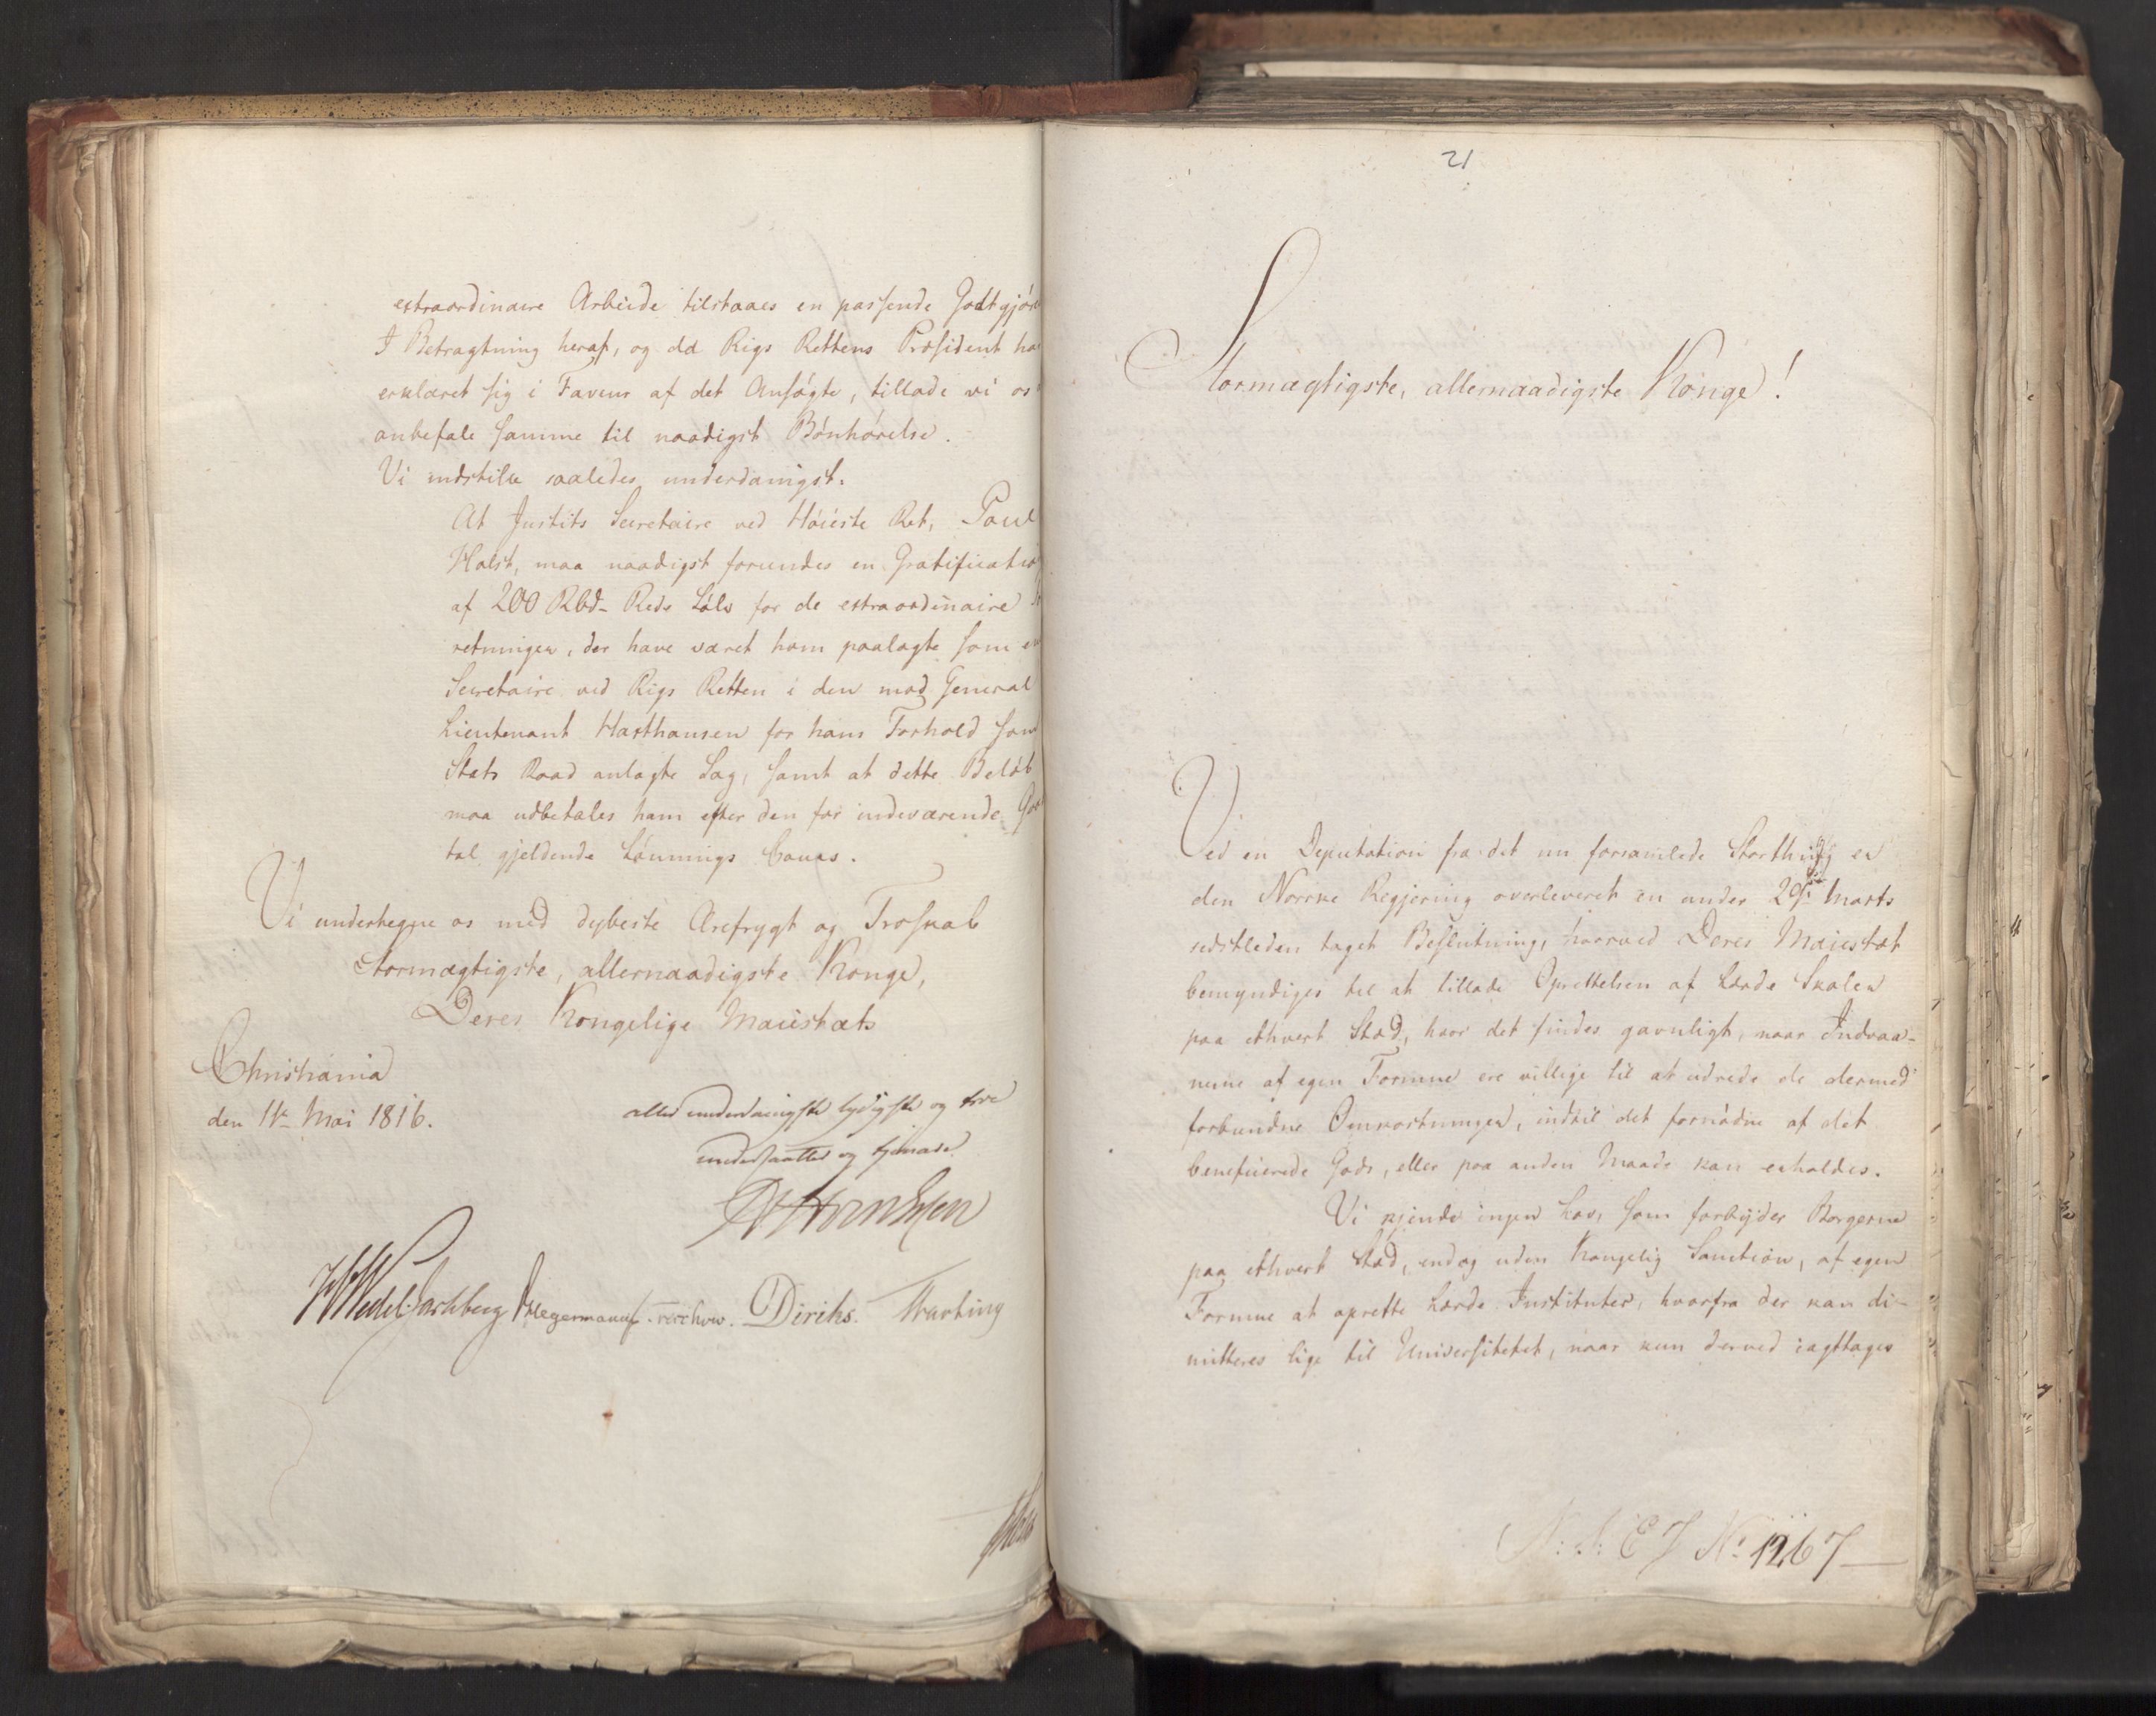 extraordinaire Arbeide tilstaaes en passende Godtgjör
I Betragtning heraf, og da Rigs Rettens Præsident ha
erklæret sig i Faveur af det Ansögte, tillade vi os
anbefale samme til naadigst Bönhörelse.
Vi indstille saaledes underdanigst:
At Justits Secretaire ved Höieste Ret, Paul
Holst, maa naadigst forundes en Gratification
af 200 Rbd. Rede Sölv for de extraordinaire
retninger, der have været ham paalagte som
Secretaire ved Rigs Retten i den mod General
Lieutenant Haxthausen for hans Forhold som
Stats Raad anlagte Sag, samt at dette Belöb
maa udbetales ham efter den for indeværende
tal gjeldende Lönnings Cours.
Vi undertegne os med dybeste Ærefrygt og Troskab
Stormægtigste, allernaadigste Konge,
Deres Kongelige Maiestæts
Christiania
den 1te Mai 1816.
allerunderdanigste lydigste og troe
undersaatter og tjenare
Wedel Jarlsberg Hegermann Diriks. Motzfeldt
21
Stormægtigste, allernaadigste Konge!
Ved en Deputation fra det nu forsamlede Storthing er
den Norske Regjering overleveret en under 29de Marts
sidstleden taget Beslutning, hvorved Deres Maiestæt
bemyndiges til at tillade Oprettelsen af Lærde Skoler
paa ethvert Stæd, hvor det findes gavnligt, naar Indvaa-
nerne af egen Formue ere villige til at udrede de dermed
forbundne Omkostninger, indtil det fornödne af det
beneficerede Gods, eller paa anden Maade kan erholdes.
Vi kjende ingen Lov, som forbyder Borgerne
paa ethvert Stæd, endog uden Kongelig Sanction, af egen
Formue at oprette Lærde Instituter, hvorfra der kan di-
mitteres lige til Universitetet, naar kun derved iagttages
N: S: E J No 1267